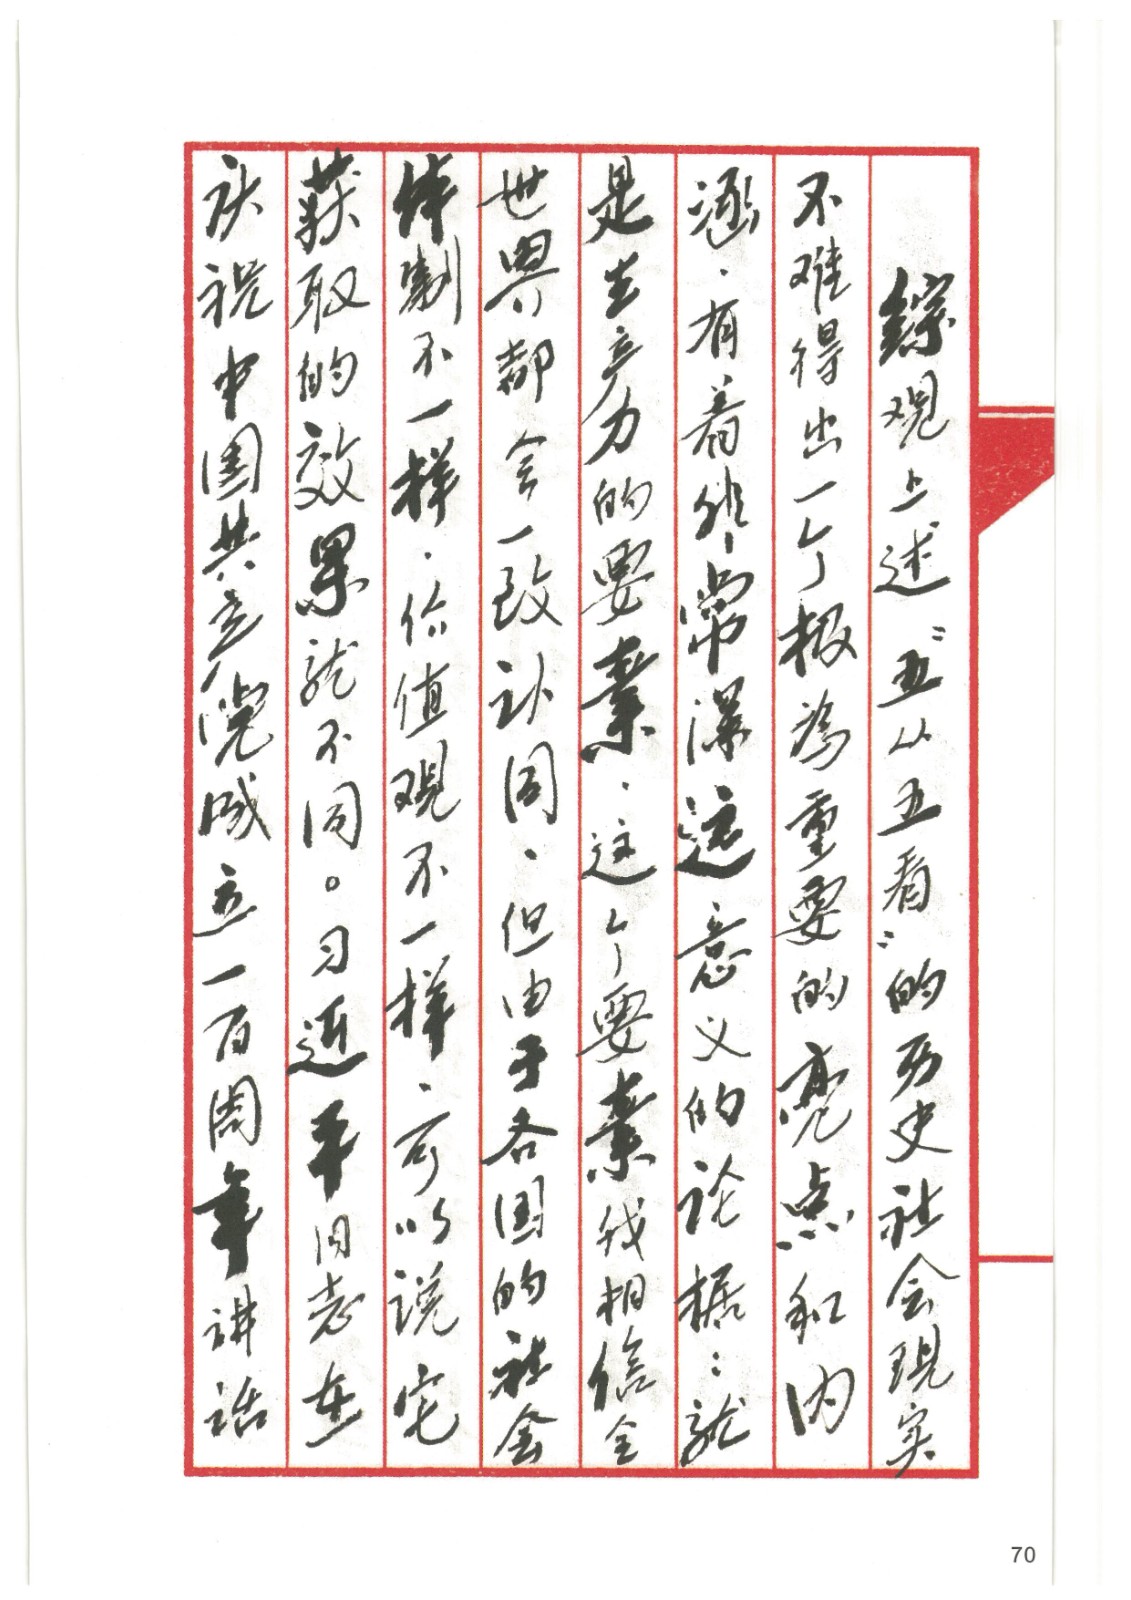 综观上述“五从五看”的历史社会现实
不难得出一个极为重要的亮点和内
涵，有着非常深远意义的论据：就
是生产力的要素，这个要素我相信全
世界都会一致认同，但由于各国的社会
体制不一样，价值观不一样，可以说完
获取的效果就不同。习近平同志在
庆祝中国共产党成立一百周年讲话
70